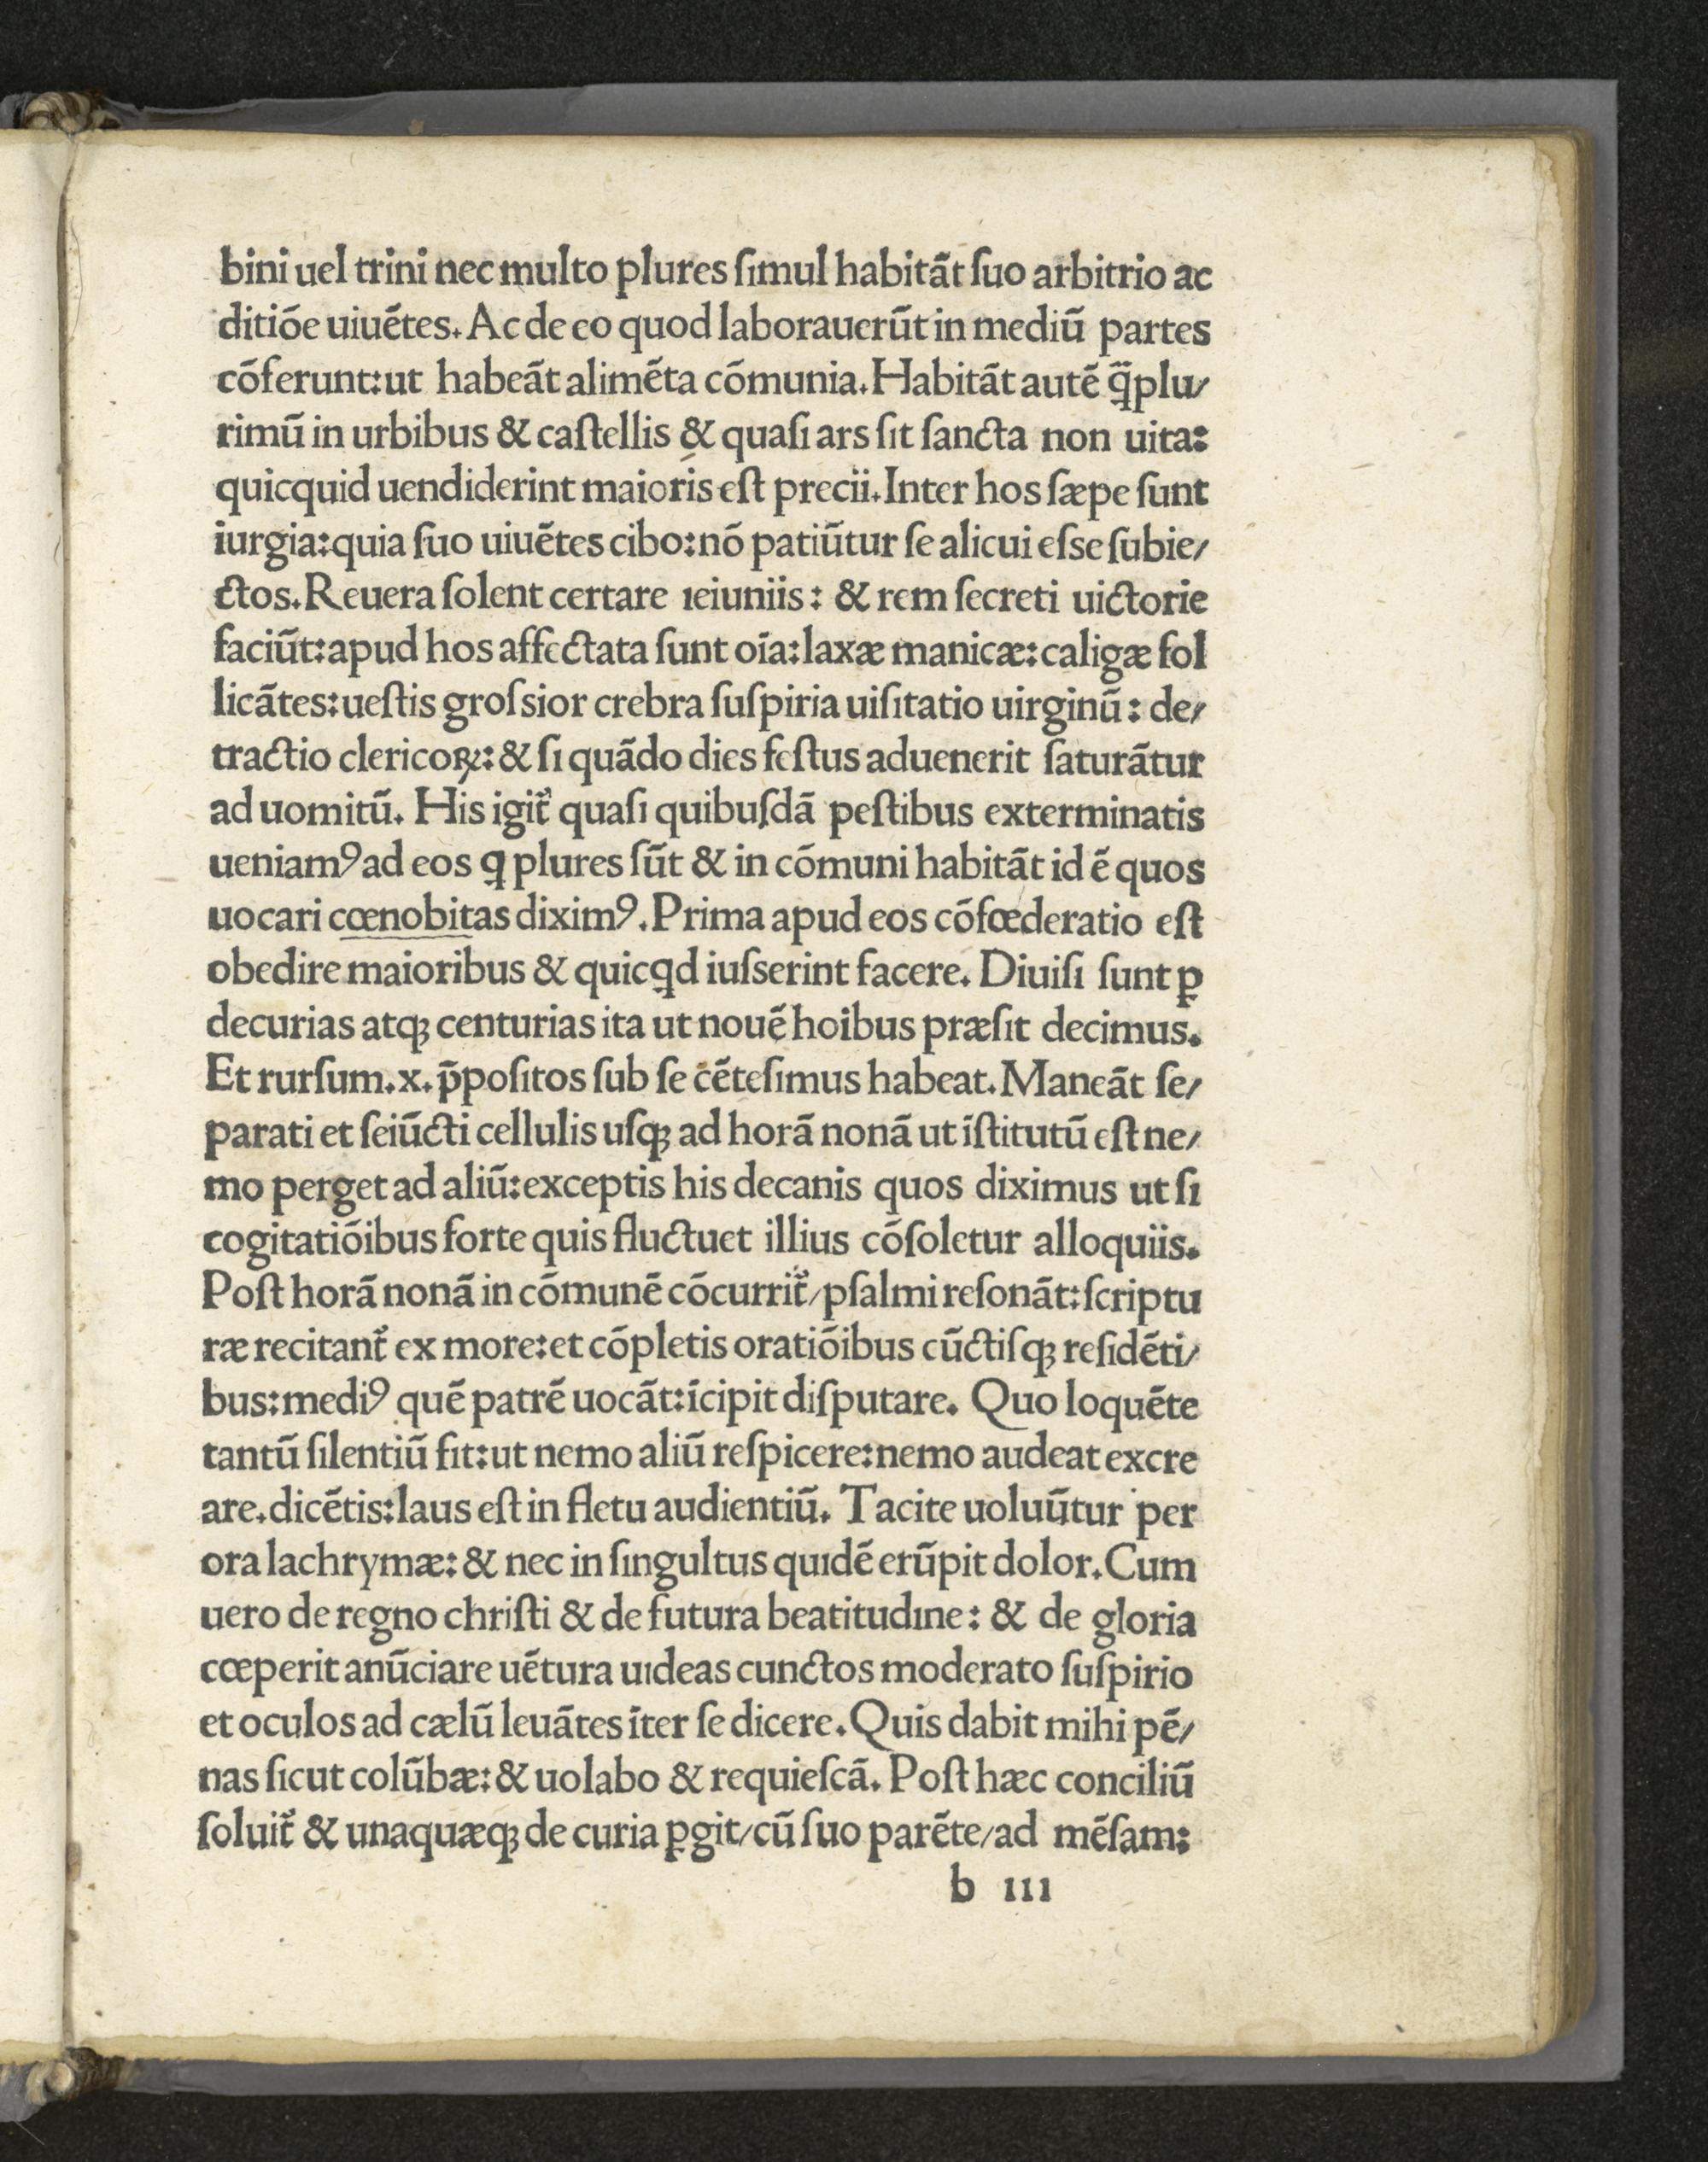 bini uel trini nec multo plures ſimul habitāt ſuo arbitrio ac
ditiōe uiuētes. Ac de eo quod laborauerūt in mediū partes
cōferunt: ut habeāt alimēta cōmunia. Habitāt autē ꝗ̄plu/
rimū in urbibus & caſtellis & quaſi ars ſit ſancta non uita:
quicquid uendiderint maioris eſt precii. Inter hos ſæpe ſunt
iurgia: quia ſuo uiuētes cibo: nō patiūtur ſe alicui eſse ſubie/
ctos. Reuera ſolent certare ıeiuniis: & rem ſecreti uictorie
faciūt: apud hos affectata ſunt oīa: laxæ manicæ: caligæ fol
licātes: ueſtis groſsior crebra ſuſpiria uiſitatio uirginū: de/
tractio clericoꝝ: & ſi quādo dies feſtus aduenerit ſaturātur
ad uomitū. His igit᷑ quaſi quibuſdā peſtibus exterminatis
ueniamꝰ ad eos ꝗ plures ſūt & in cōmuni habitāt id ē quos
uocari cœnobitas diximꝰ. Prima apud eos cōfœderatio eſt
obedire maioribus & quicꝗd iuſserint facere. Diuiſi ſunt ꝑ
decurias atqꝫ centurias ita ut nouē hoibus præſit decimus.
Et rurſum. x. p̄poſitos ſub ſe cēteſimus habeat. Maneāt ſe/
parati et ſeiūcti cellulis uſqꝫ ad horā nonā ut īſtitutū eſt ne/
mo perget ad aliū: exceptis his decanis quos diximus ut ſi
cogitatiōibus forte quis fluctuet illius cōſoletur alloquiis.
Poſt horā nonā in cōmunē cōcurrit᷑/ pſalmi reſonāt: ſcriptu
ræ recitant᷑ ex more: et cōpletis oratiōibus cūctiſqꝫ reſidēti/
bus: mediꝰ quē patrē uocāt: īcipit diſputare. Quo loquēte
tantū ſilentiū fit: ut nemo aliū reſpicere: nemo audeat excre
are. dicētis: laus eſt in fletu audientiū. Tacite uoluūtur per
ora lachrymæ: & nec in ſingultus quıdē erūpit dolor. Cum
uero de regno chriſti & de futura beatitudıne: & de gloria
cœperit anūciare uētura uıdeas cunctos moderato ſuſpirio
et oculos ad cælū leuātes īter ſe dicere. Quis dabit mihi pē/
nas ſicut colūbæ: & uolabo & requieſcā. Poſt hæc conciliū
ſoluit᷑ & unaquæqꝫ de curia ꝑgit/ cū ſuo parēte/ ad mēſam:
b ııı